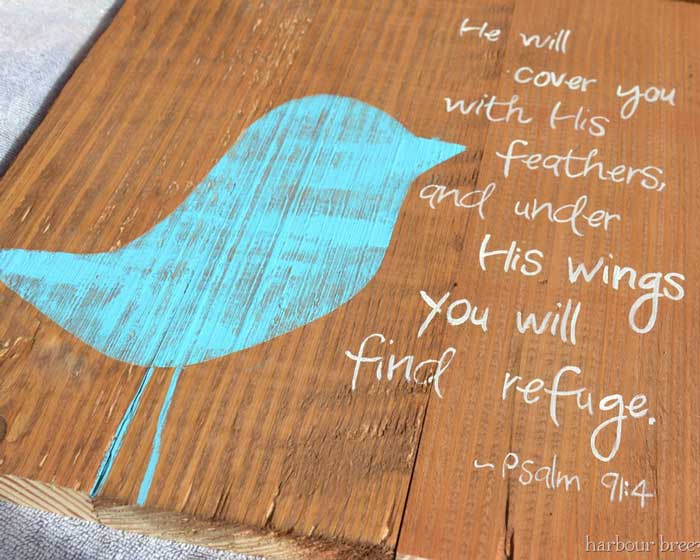 He will
cover you
with His
feathers,
and under
His wings
you will
find refuge.
~Psalm 91:4
harbour bree